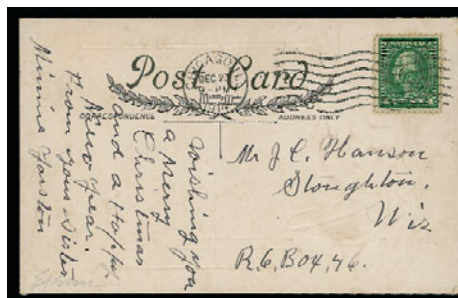 Post Card
CHICAGO, ILL.
DEC 23
CORRESPONDENCE
ADDRESS ONLY
Wishing you
a Merry
Christmas
and a Happy
New Year.
From your Sister
Minnie
Mr J. C. Hanson
Stoughton.
Wis
R.6, Box, 46.